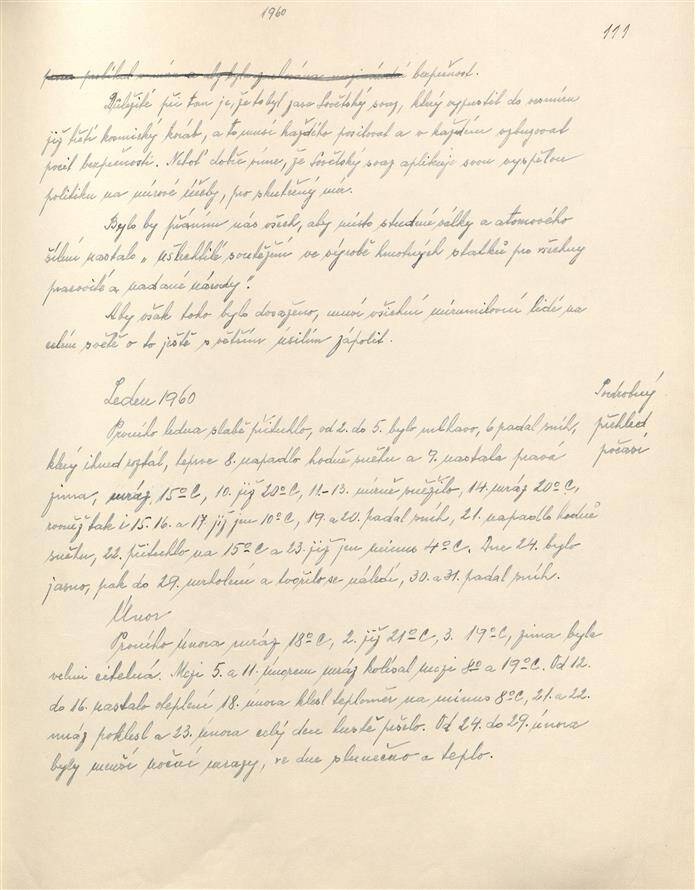 1960
111
bezpečnost.
Důležité při tom je, že to byl zase Sovětský svaz, který vypustil do vesmíru
již třetí kosmický koráb, a to musí každého posilovat a v každém vzbuzovat
pocit bezpečnosti. Neboť dobře víme, že Sovětský svaz aplikuje svou vyspělou
politiku na mírové účely, pro skutečný mír.
Bylo by přáním nás všech, aby místo studené války a atomového
šílení nastalo „ušlechtilé soutěžení ve výrobě hmotných statků pro všechny
pracovité a nadané národy".
Aby však toho bylo dosaženo, musí všichni mírumilovní lidé na
celém světě o to ještě s větším úsilím zápolit.
Leden 1960
Podrobný
přehled
počasí
Prvního ledna slabě přituhlo, od 2. do 5. bylo mlhavo, 6 padal sníh,
který ihned roztál, teprve 8. napadlo hodně sněhu a 9. nastala pravá
zima, mráz 15°C, 10. již 20°C, 11.-13. mírně sněžilo, 14. mráz 20°C,
rovněž tak i 15. 16. a 17. již jen 10°C, 19. a 20. padal sníh, 21. napadlo hodně
sněhu, 22. přituhlo na 15°C a 23. již jen minus 4°C. Dne 24. bylo
jasno, pak do 29. mrholení a tvořilo se náledí, 30. a 31. padal sníh.
Únor
Prvního února mráz 18°C, 2. již 21°C, 3. 19°C, zima byla
velmi citelná. Mezi 5. a 11. únorem mráz kolísal mezi 8° a 19°C. Od 12.
do 16. nastalo oteplení 18. února klesl teploměr na minus 8°C, 21. a 22.
mráz poklesl a 23. února celý den hustě pršelo. Od 24. do 29. února
byly menší noční mrazy, ve dne slunečno a teplo.